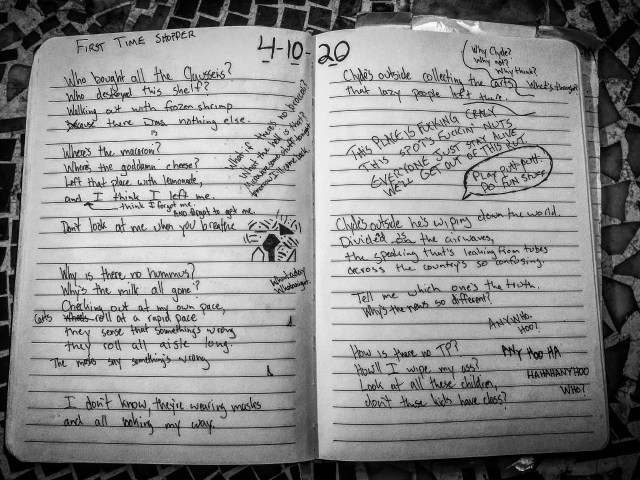 First Time Shopper
4-10-20
Who bought all the Claussens?
Who destroyed this shelf?
Walking out with frozen shrimp
because there was nothing else.
is
Where's the macaroni?
Where's the goddamn cheese?
Left that place with lemonade,
and I think I left me.
think I forgot me.
Also forgot to get me.
Don't look at me when you breathe
What if there's no broccoli?
What the hell is rice?
Why is there no hummus?
Why's the milk all gone?
Checking out at my own pace,
Carts Wheels roll at a rapid pace
they sense that something's wrong
they roll all aisle long.
The masks say something's wrong
I don't know, they're wearing masks
and all looking my way.
What a day
What a night.
Clyde's outside collecting the carts
that lazy people left there.
Why Clyde?
Why not?
Why think?
What's through?
CRAZY
THIS PLACE IS FUCKING NUTS
THIS SPOT'S FUCKIN' NUTS
EVERYONE JUST STAY ALIVE
WE'LL GET OUT OF THIS RUT.
Play putt-putt.
Do fun stuff
Clyde's outside he's wiping down the world.
Divided is the airwaves,
the speaking that's leaking from tubes
across the country's so confusing.
Tell me which one's the truth.
Why's the news so different?
ANYWHO.
HOO?
How is there no TP?
How'll I wipe my ass?
Look at all these children,
don't these kids have class?
ANY HOO-HA
HAHAHANYHOO
WHO?